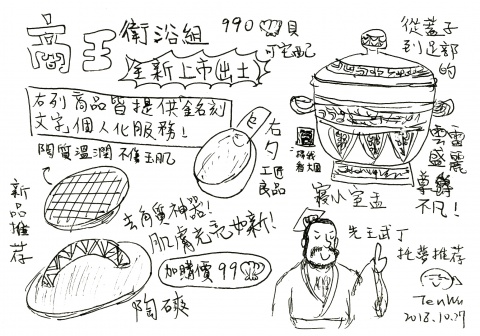 商王 衛浴組
990 貝
可宅配
全新上市(出土)
右列商品皆提供銘刻
文字個人化服務!
陶質溫潤 不傷玉肌
新品推荐
去角質神器!
肌膚光亮如新!
加購價 99
陶碩
右夕
工匠
良品
掃我
看大圖
寢小室盂
從蓋子
到足部
的
雲雷
盛麗
尊
不凡!
先王武丁
托夢推荐
TenWu
2018.10.27